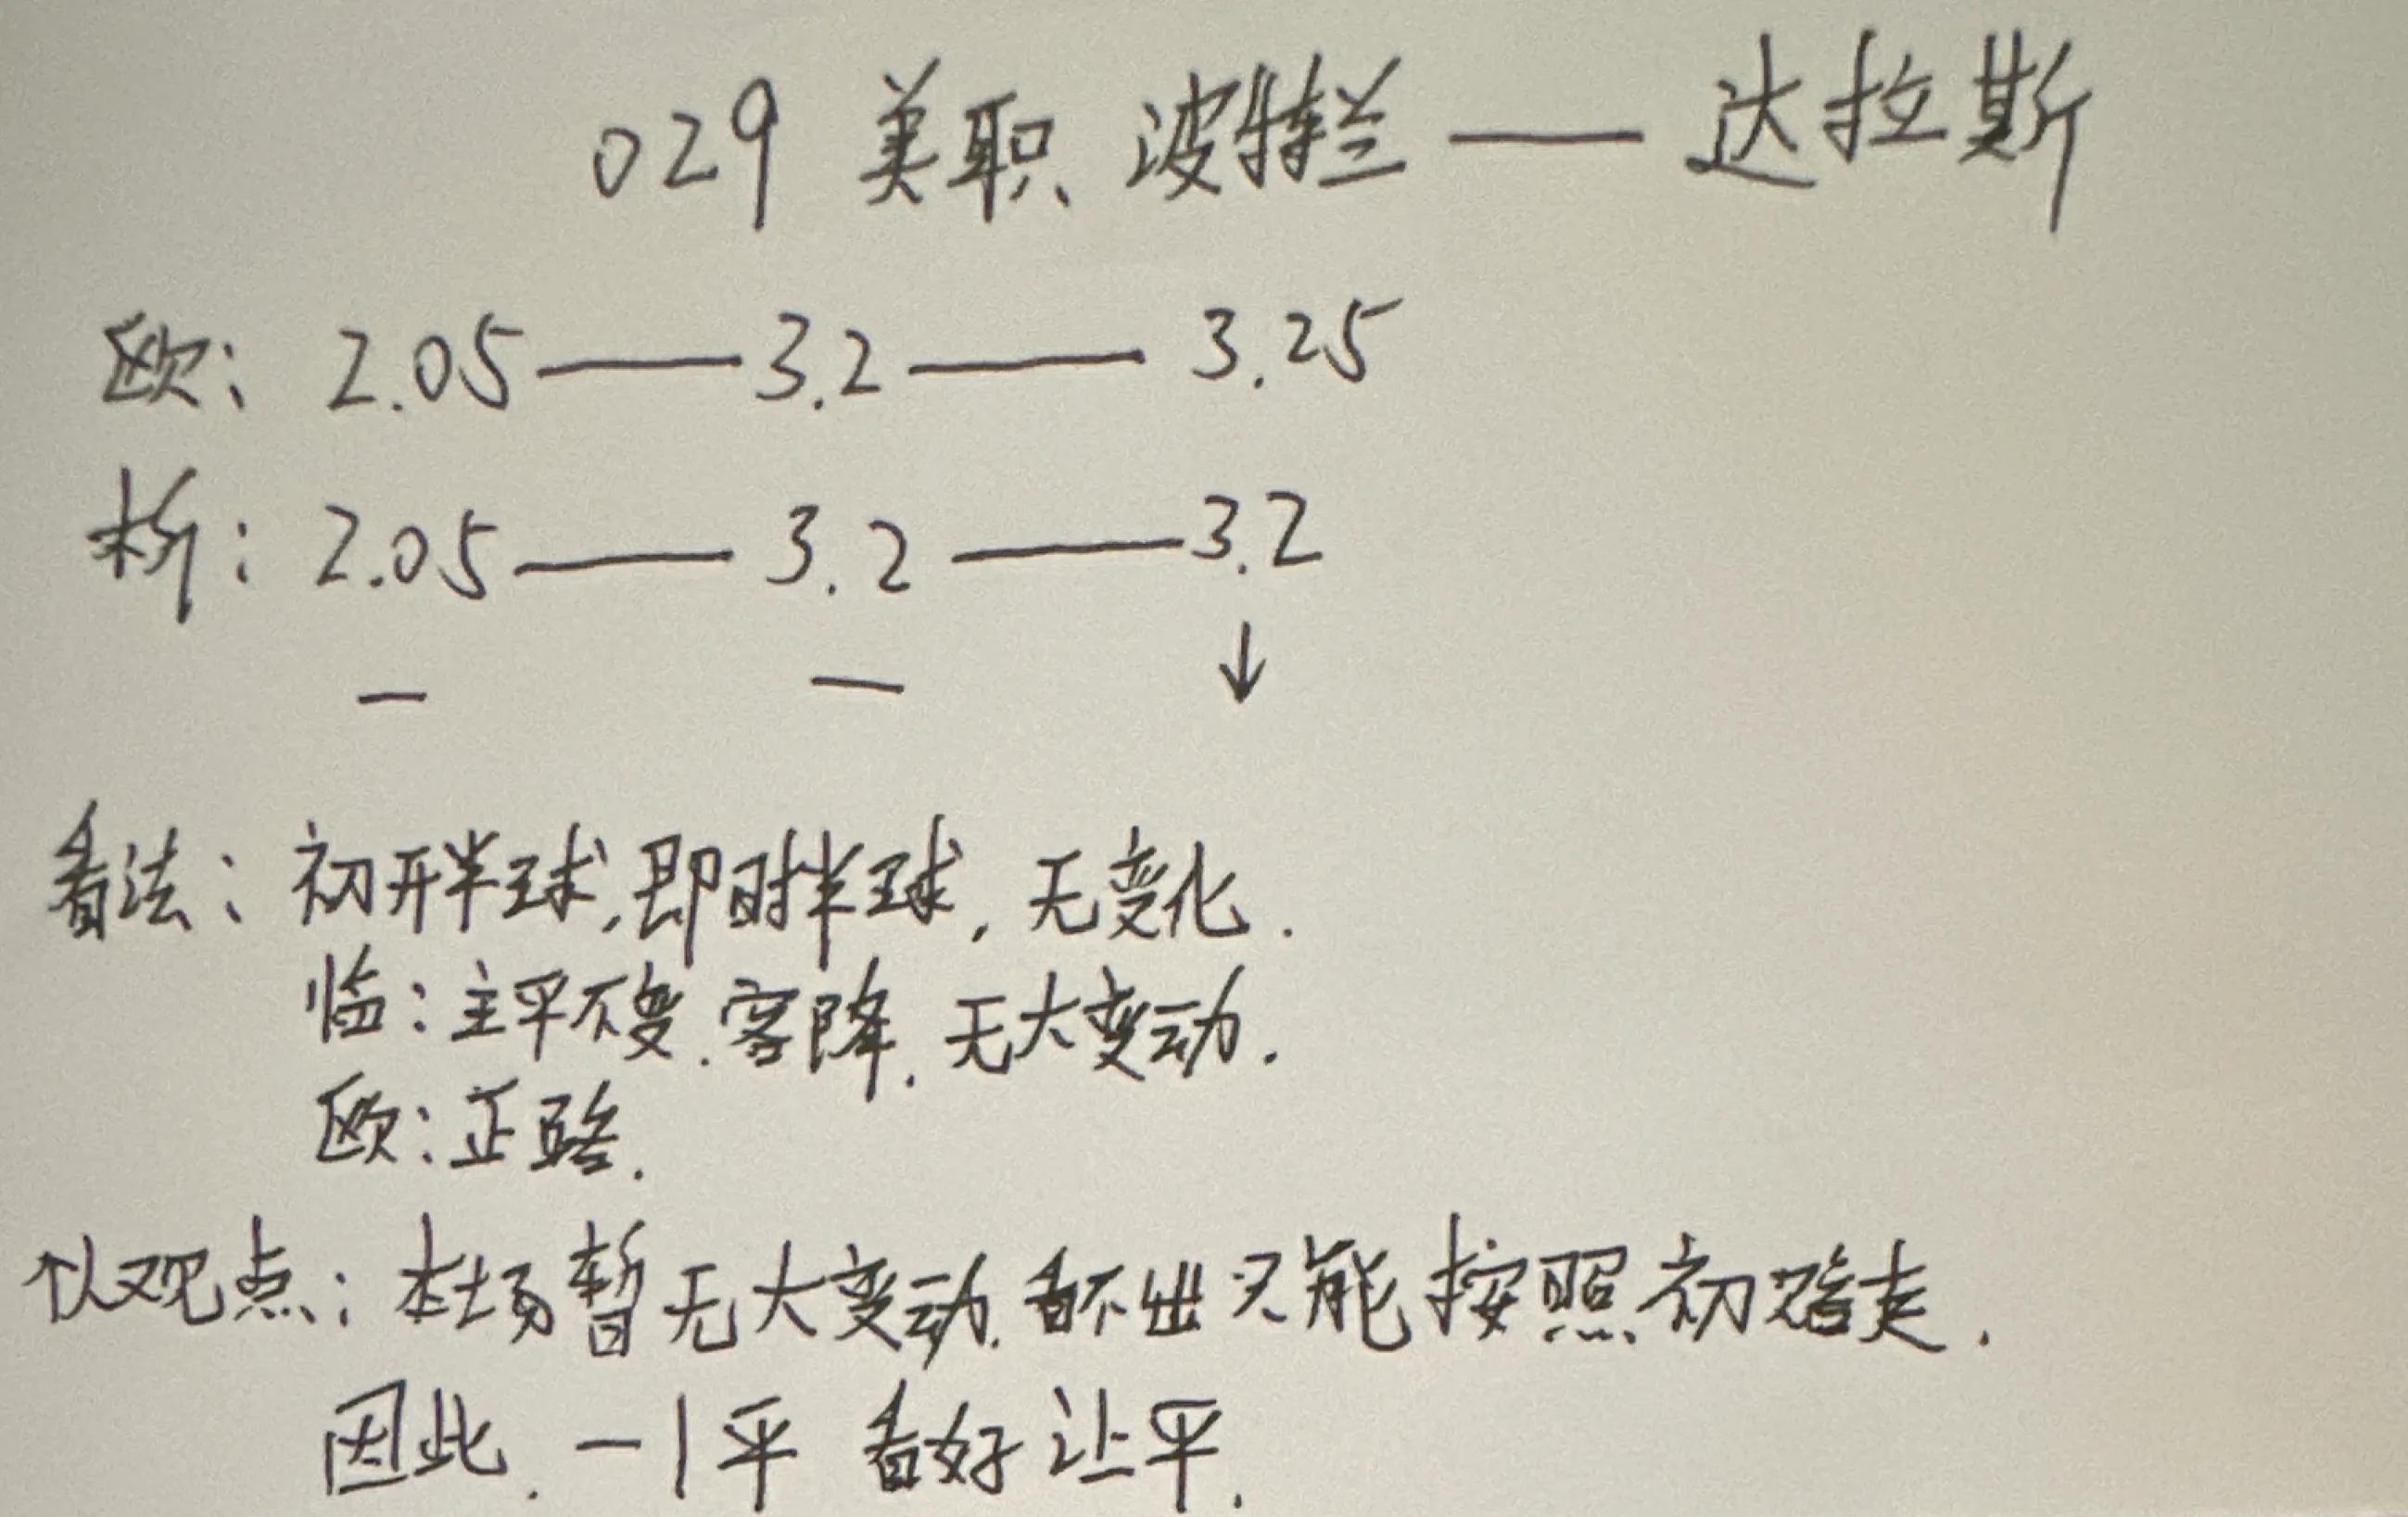 029 美职 波特兰——达拉斯
欧: 2.05——3.2——3.25
析: 2.05——3.2——3.2
— — ↓
看法: 初开半球,即时半球,无变化.
临: 主平不变.客降.无大变动.
欧: 正路.
个人观点: 本场暂无大变动.看不出只能按照初路走.
因此. -1平 看好让平.